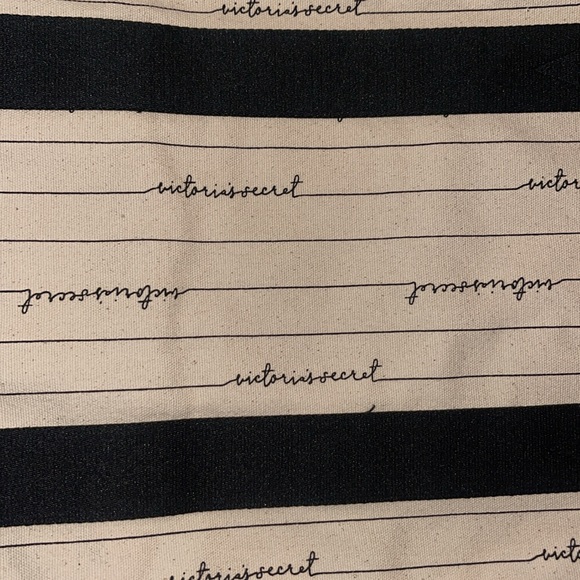 victoria's secret
victoria's secret victor
victoria's secret victoria's secret
victoria's secret
victoria's secret victo